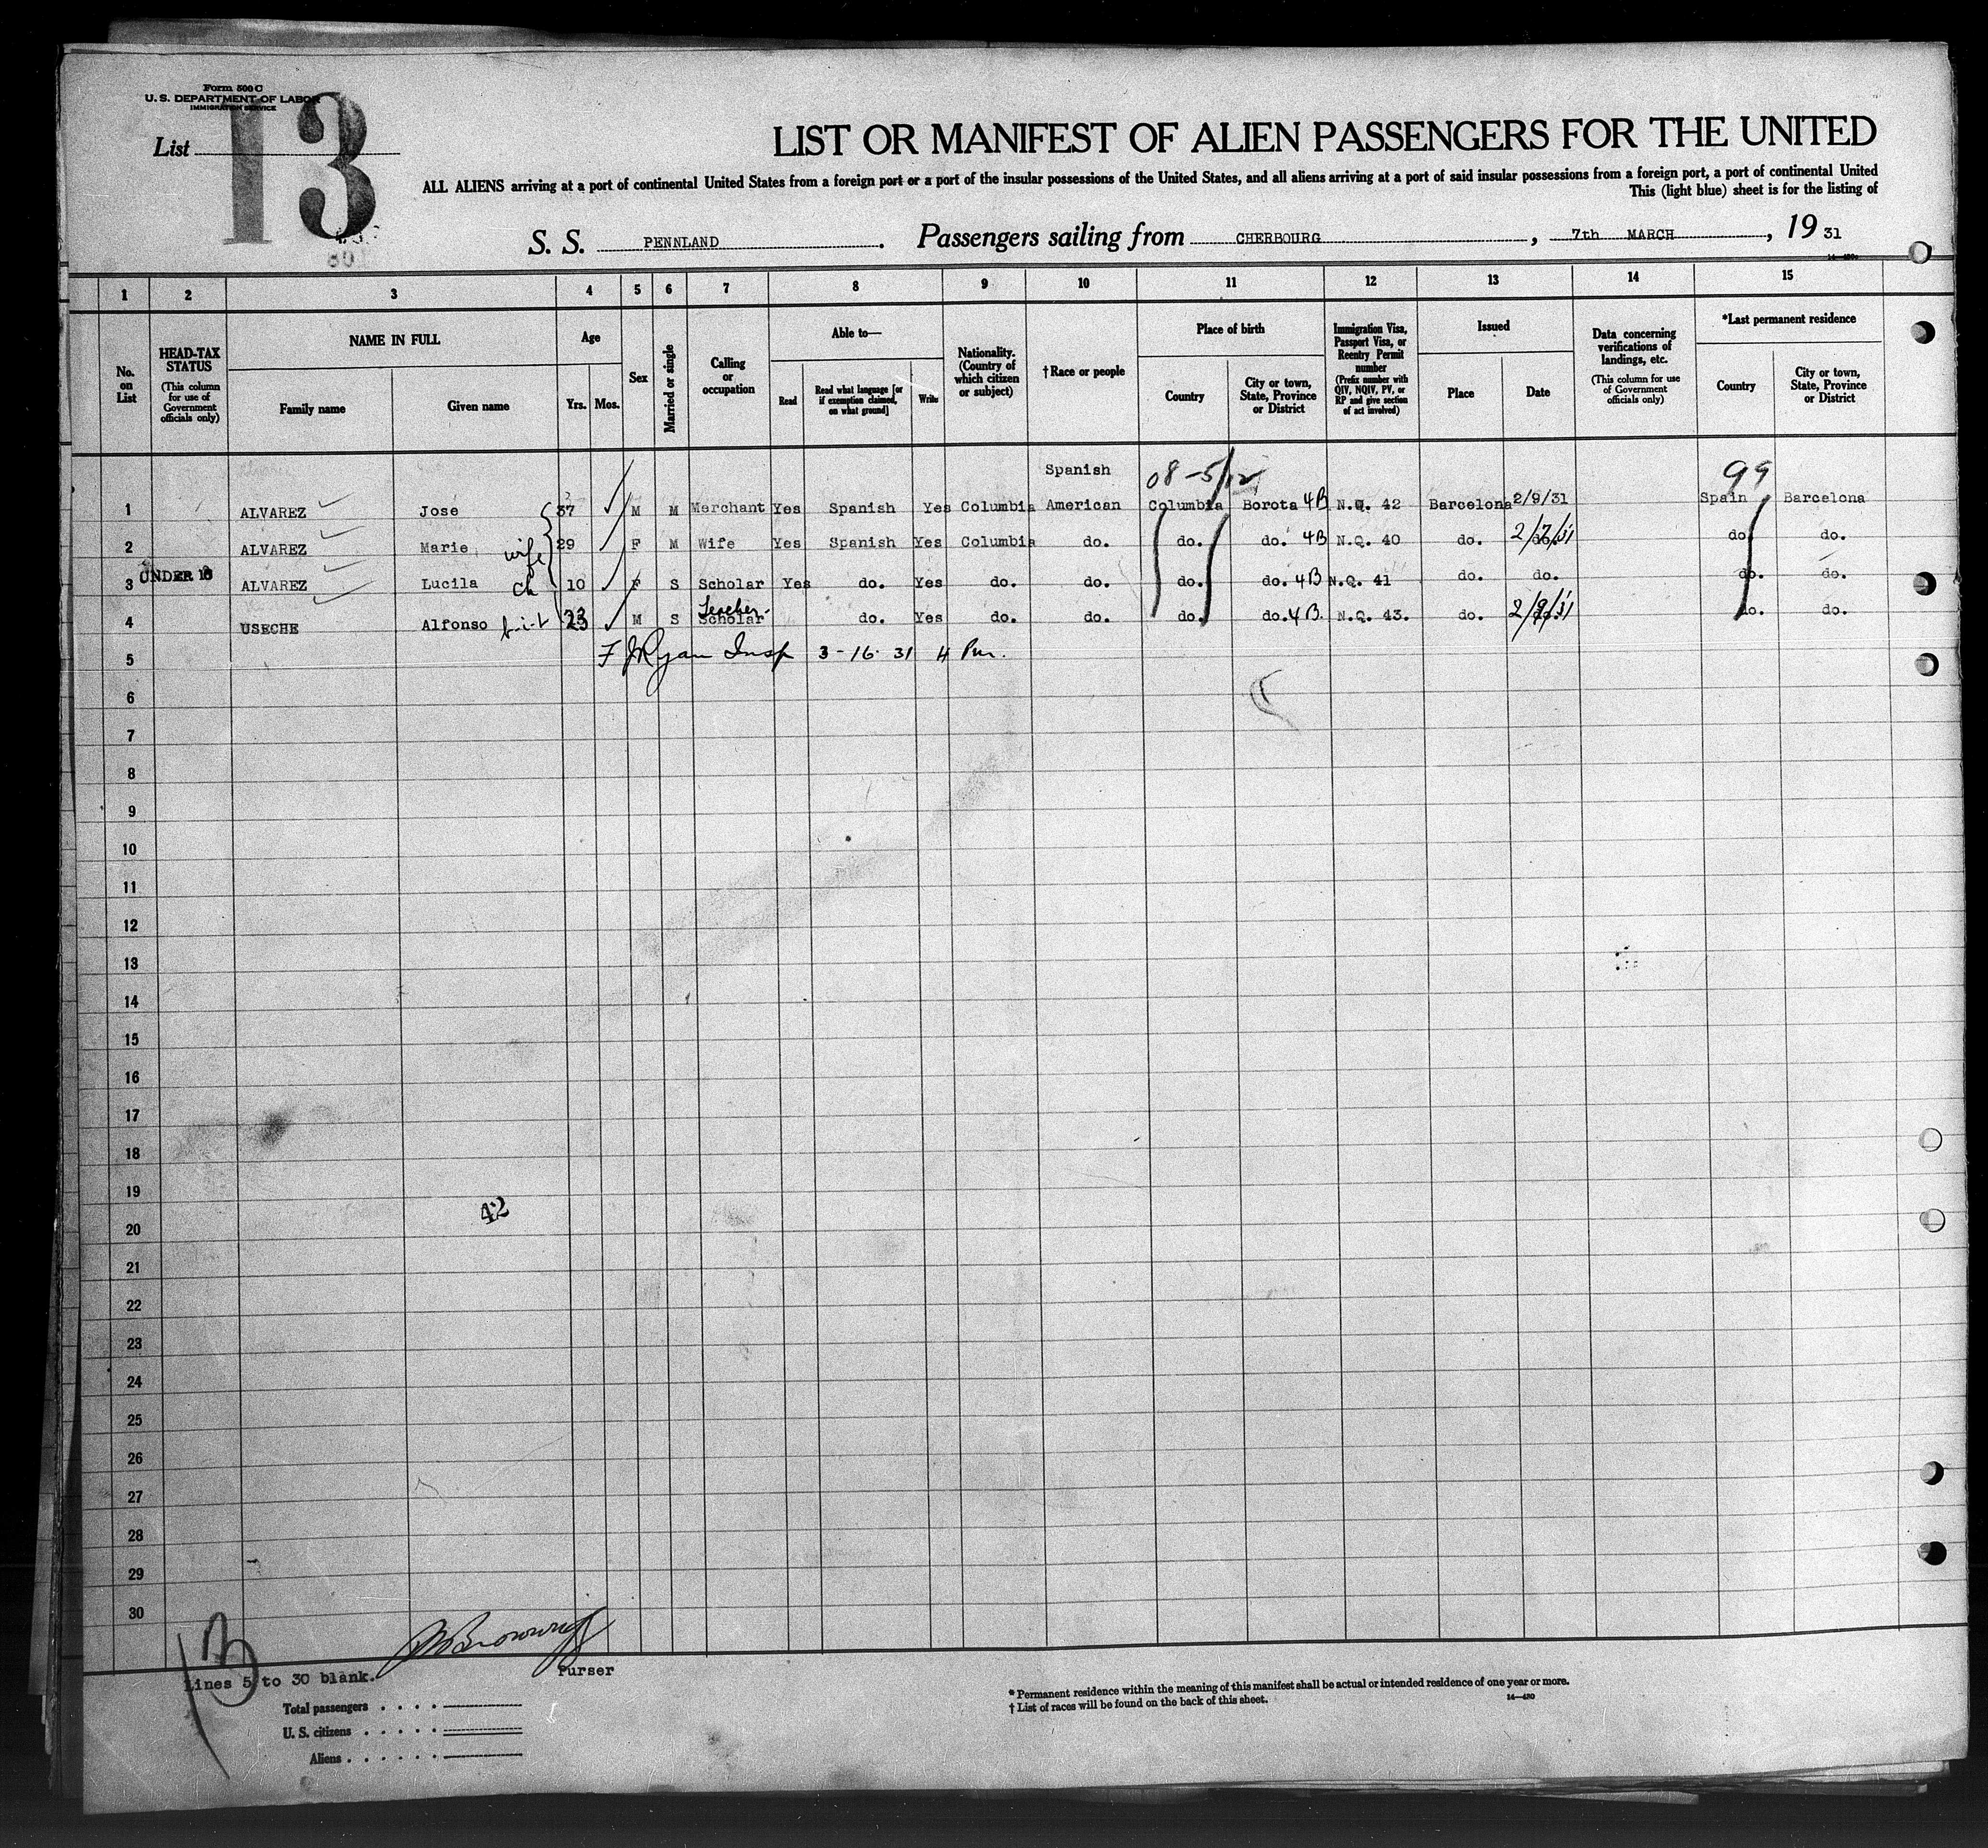 Form 500 C
U. S. DEPARTMENT OF LABOR
IMMIGRATION SERVICE
List
13
LIST OR MANIFEST OF ALIEN PASSENGERS FOR THE UNITED
ALL ALIENS arriving at a port of continental United States from a foreign port or a port of the insular possessions of the United States, and all aliens arriving at a port of said insular possessions from a foreign port, a port of continental United
This (light blue) sheet is for the listing of
S. S. PENNLAND. Passengers sailing from CHERBOURG, 7th MARCH, 19 31
1 2 3 4 5 6 7 8 9 10 11 12 13 14 15
No. on List
HEAD-TAX STATUS (This column for use of Government officials only)
NAME IN FULL
Family name
Given name
Age
Yrs. Mos.
Sex
Married or single
Calling or occupation
Able to—
Read
Read what language [or if exemption claimed, on what ground]
Write
Nationality. (Country of which citizen or subject)
†Race or people
Place of birth
Country
City or town, State, Province or District
Immigration Visa, Passport Visa, or Reentry Permit number (Prefix number with QIV, NQIV, PV, or RP and give section of act involved)
Issued
Place
Date
Data concerning verifications of landings, etc. (This column for use of Government officials only)
*Last permanent residence
Country
City or town, State, Province or District
Spanish 08-5/12 99
1 ALVAREZ Jose 37 M M Merchant Yes Spanish Yes Columbia American Columbia Borota 4B N.Q. 42 Barcelona 2/9/31 Spain Barcelona
2 ALVAREZ Marie wife 29 F M Wife Yes Spanish Yes Columbia do. do. do. 4B N.Q. 40 do. 2/7/31 do. do.
UNDER 16
3 ALVAREZ Lucila ch 10 F S Scholar Yes do. Yes do. do. do. do. 4B N.Q. 41 do. do. do. do.
Teacher
4 USECHE Alfonso 23 M S Scholar do. Yes do. do. do. do. 4B. N.Q. 43. do. 2/9/31 do. do.
5 F J Ryan Insp 3-16-31 4 Pm.
6
7
8
9
10
11
12
13
14
15
16
17
18
19
42
20
21
22
23
24
25
26
27
28
29
30
Browning
Purser
Lines 5 to 30 blank.
Total passengers
U. S. citizens
Aliens
* Permanent residence within the meaning of this manifest shall be actual or intended residence of one year or more.
† List of races will be found on the back of this sheet.
14—480